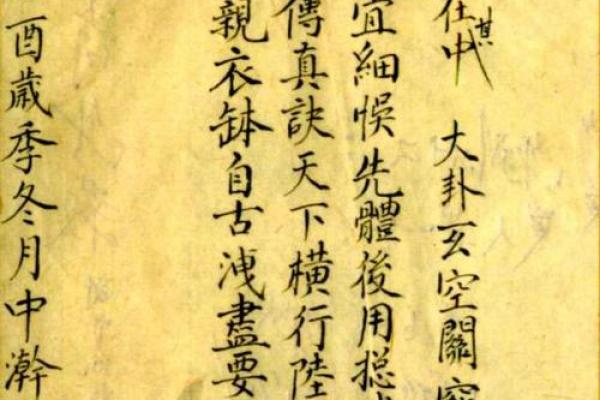 在其中 大卦玄空關竅
宜細悮先體後用摠
傳真訣天下橫行陸
親衣缽自古洩盡要
酉歲季冬月中澣